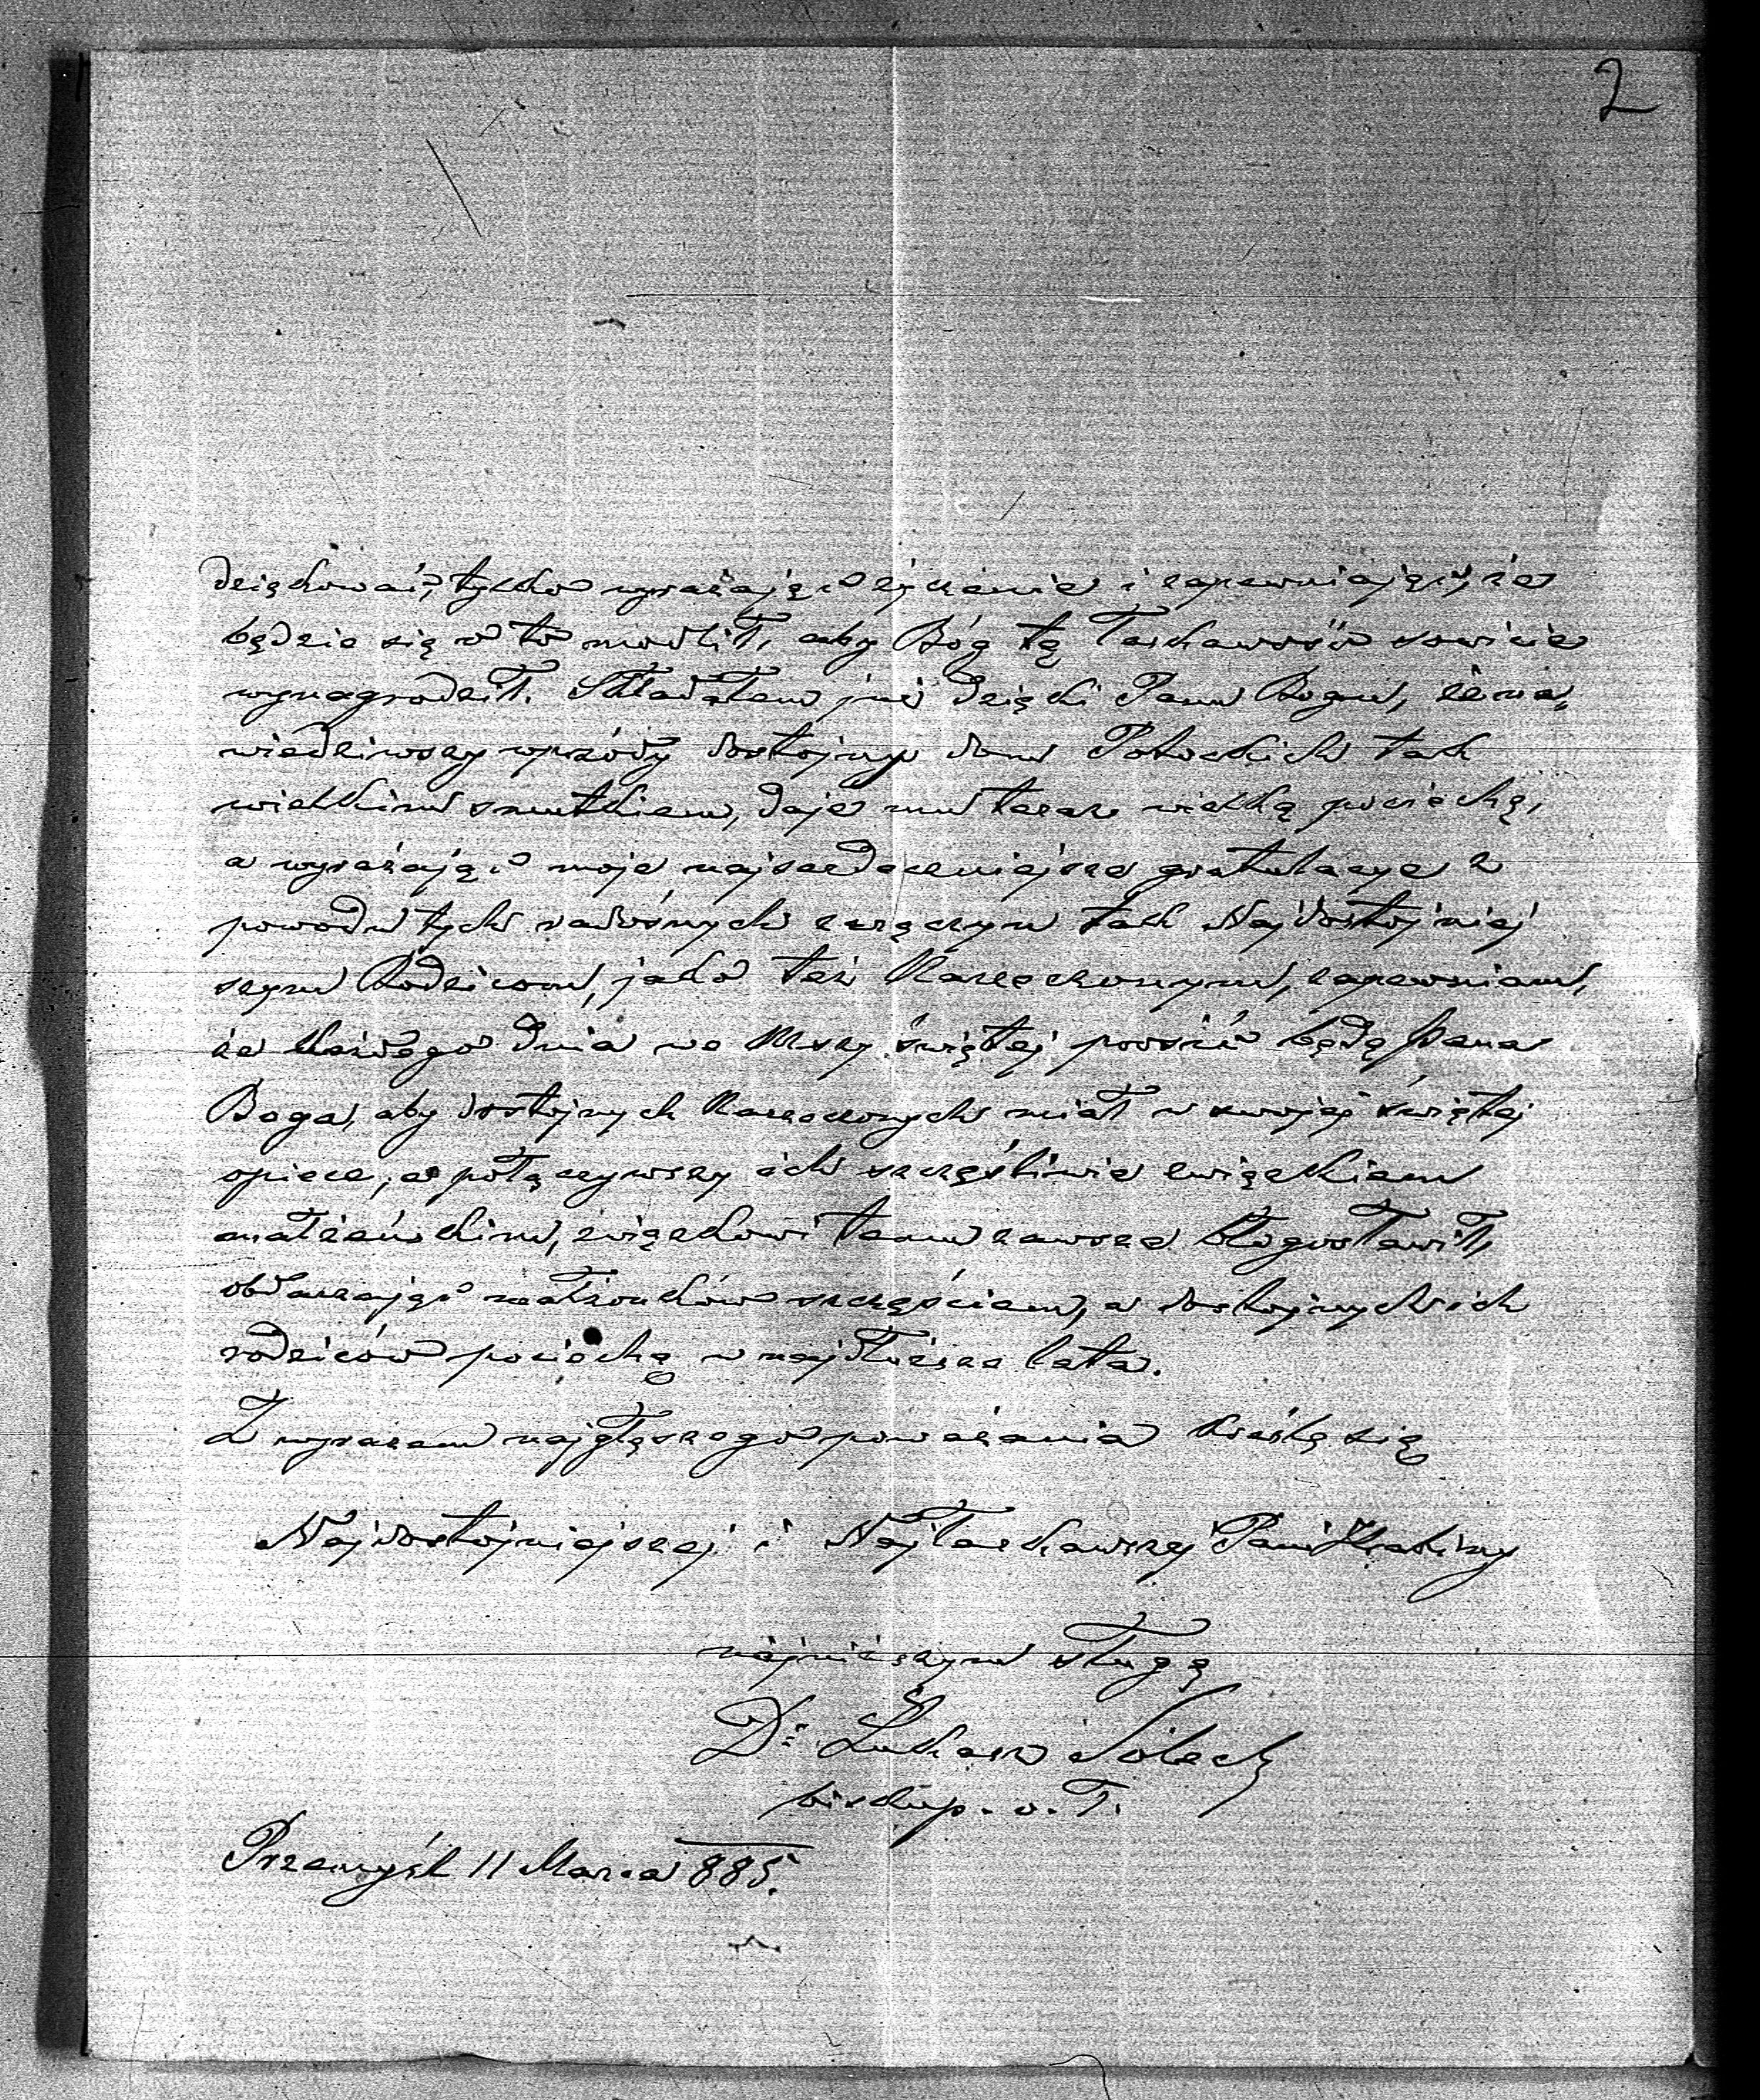 2
dziękować, tylko wyrażając życzenie i zapewniając, że
będzie się o to modlił, aby Bóg tę łaskawość sowicie
wynagrodził. Składałem już dzięki Panu Bogu, że na„
wiedziwszy wprzódy dostojny dom Potockich tak
wielkim smutkiem, daje mu teraz wielką pociechę,
a wyrażając moje najserdeczniejsze gratulacye z
powodu tych radośnych zaręczyn tak Najdostojniej
szym Rodzicom, jako też Narzeczonym, zapewniam,
że każdego dnia we Mszy świętej prosić będę Pana
Boga, aby dostojnych Narzeczonych miał w swojej świętej
opiece, a połączywszy ich szczęśliwie związkiem
małżeńskim, związkowi temu zawsze błogosławił,
obdarzając małżonków szczęściem, a dostojnych ich
rodziców pociechą w najdłuższe lata.
Z wyrazem najgłębszego poważania kreślę się
Najdostojniejszej i Najłaskawszej Pani Hrabiny
najniższym sługą
Dr Łukasz Solecki
biskup. o. ł.
Przemyśl 11 Marca 885.